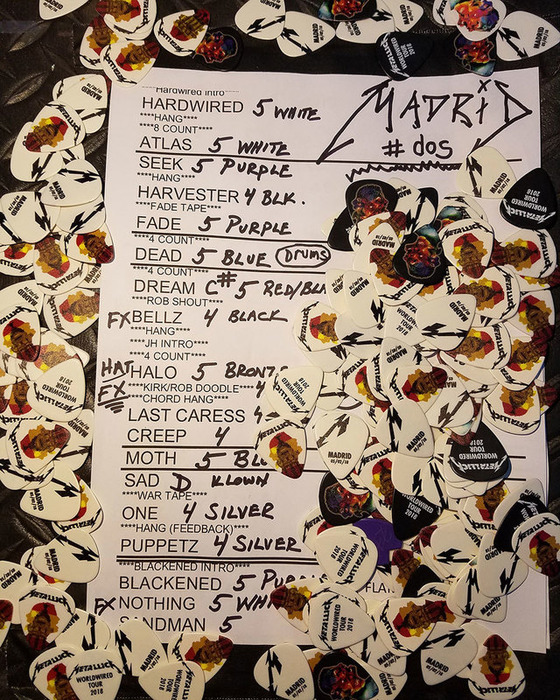 MADRID
# dos
****Hardwired intro****
HARDWIRED 5 WHITE
****HANG****
****8 COUNT****
ATLAS 5 WHITE
SEEK 5 PURPLE
****HANG****
HARVESTER 4 BLK.
****FADE TAPE****
FADE 5 PURPLE
****4 COUNT****
DEAD 5 BLUE DRUMS
****4 COUNT****
DREAM C# 5 RED/BLA
****ROB SHOUT****
FX BELLZ 4 BLACK
****HANG****
****JH INTRO****
****4 COUNT****
HAT HALO 5 BRONZE
FX ****KIRK/ROB DOODLE**** 4
****CHORD HANG****
LAST CARESS 4
CREEP 4
MOTH 5 BL
SAD D KLOWN
****WAR TAPE****
ONE 4 SILVER
****HANG (FEEDBACK)****
PUPPETZ 4 SILVER
****BLACKENED INTRO****
BLACKENED 5 PURP
FLAT
FX NOTHING 5 WHI
SANDMAN 5
METALLICA
WORLDWIRED
TOUR
2018
MADRID